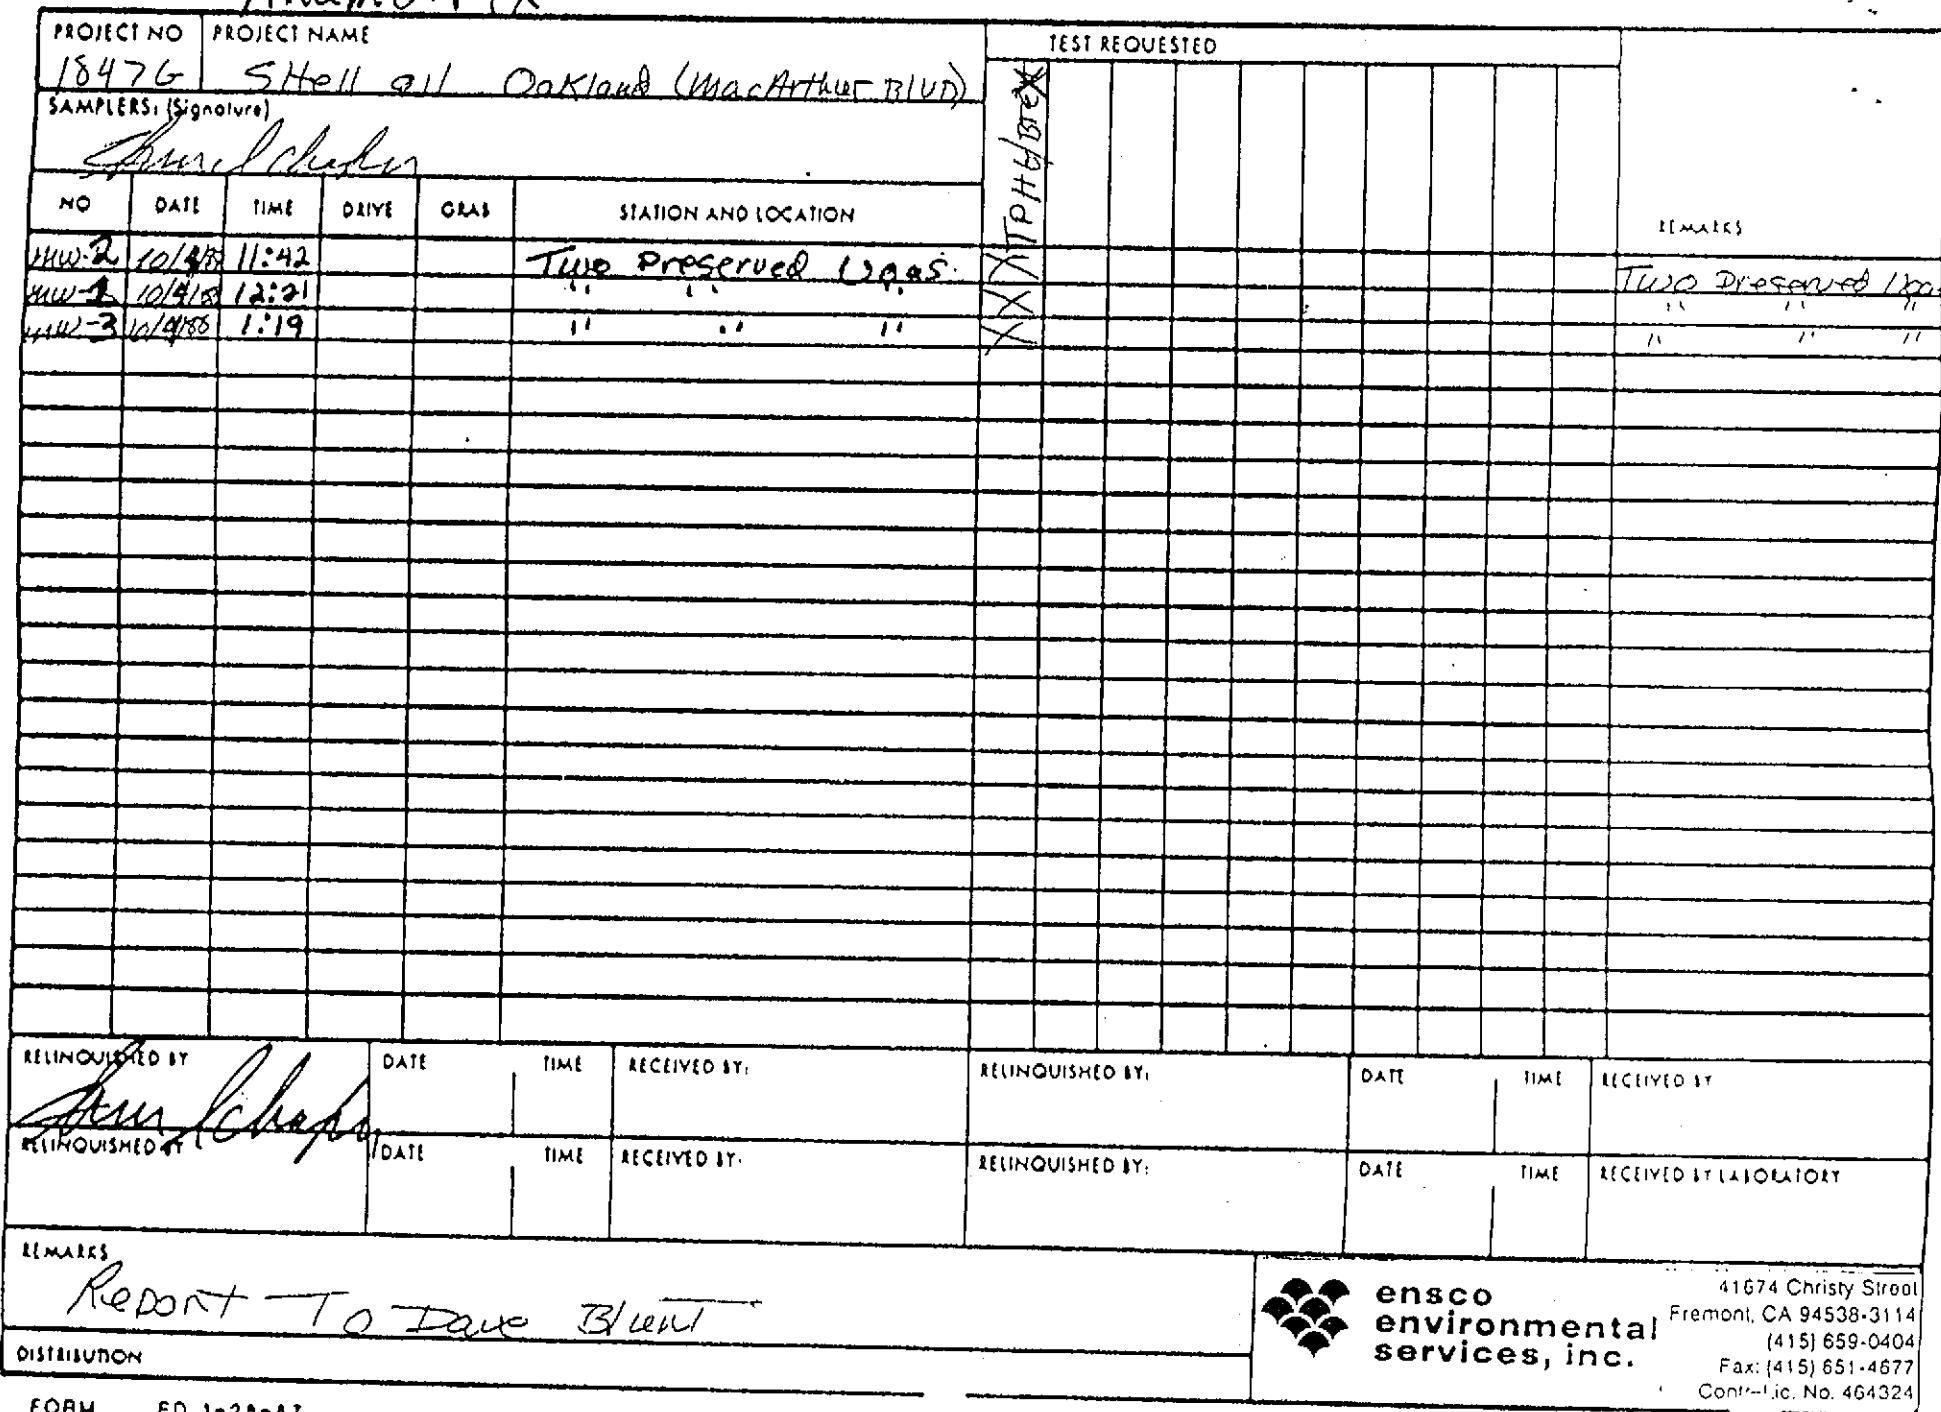 PROJECT NO PROJECT NAME TEST REQUESTED
1847G SHell oil Oakland (MacArthur BlVD)
SAMPLERS: (Signature)
TPHG/BTEX
NO DATE TIME DRIVE GRAB STATION AND LOCATION REMARKS
MW-2 11:42 Two Preserved Voas. X Two Preserved Voas
MW-1 12:21 " " " X " " "
MW-3 1:19 " " " X " " "
RELINQUISHED BY DATE TIME RECEIVED BY: RELINQUISHED BY: DATE TIME RECEIVED BY
RELINQUISHED BY DATE TIME RECEIVED BY: RELINQUISHED BY: DATE TIME RECEIVED BY LABORATORY
REMARKS
Report To Dave Blunt
DISTRIBUTION
ensco
environmental
services, inc.
41674 Christy Street
Fremont, CA 94538-3114
(415) 659-0404
Fax: (415) 651-4677
Contr. Lic. No. 464324
FORM